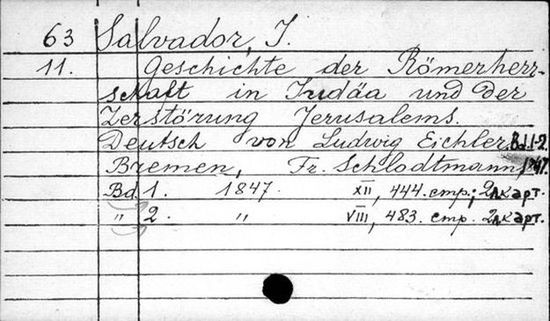 63 Salvador, J.
11. Geschichte der Römerherr-
schaft in Judäa und der
Zerstörung Jerusalems.
Deutsch von Ludwig Eichler. Bd. 1-2.
Bremen, Fr. Schlodtmann, 1847.
Bd. 1. 1847. XII, 444. стр.; 2 л карт.
" 2. " VIII, 483. стр. 2 л карт.